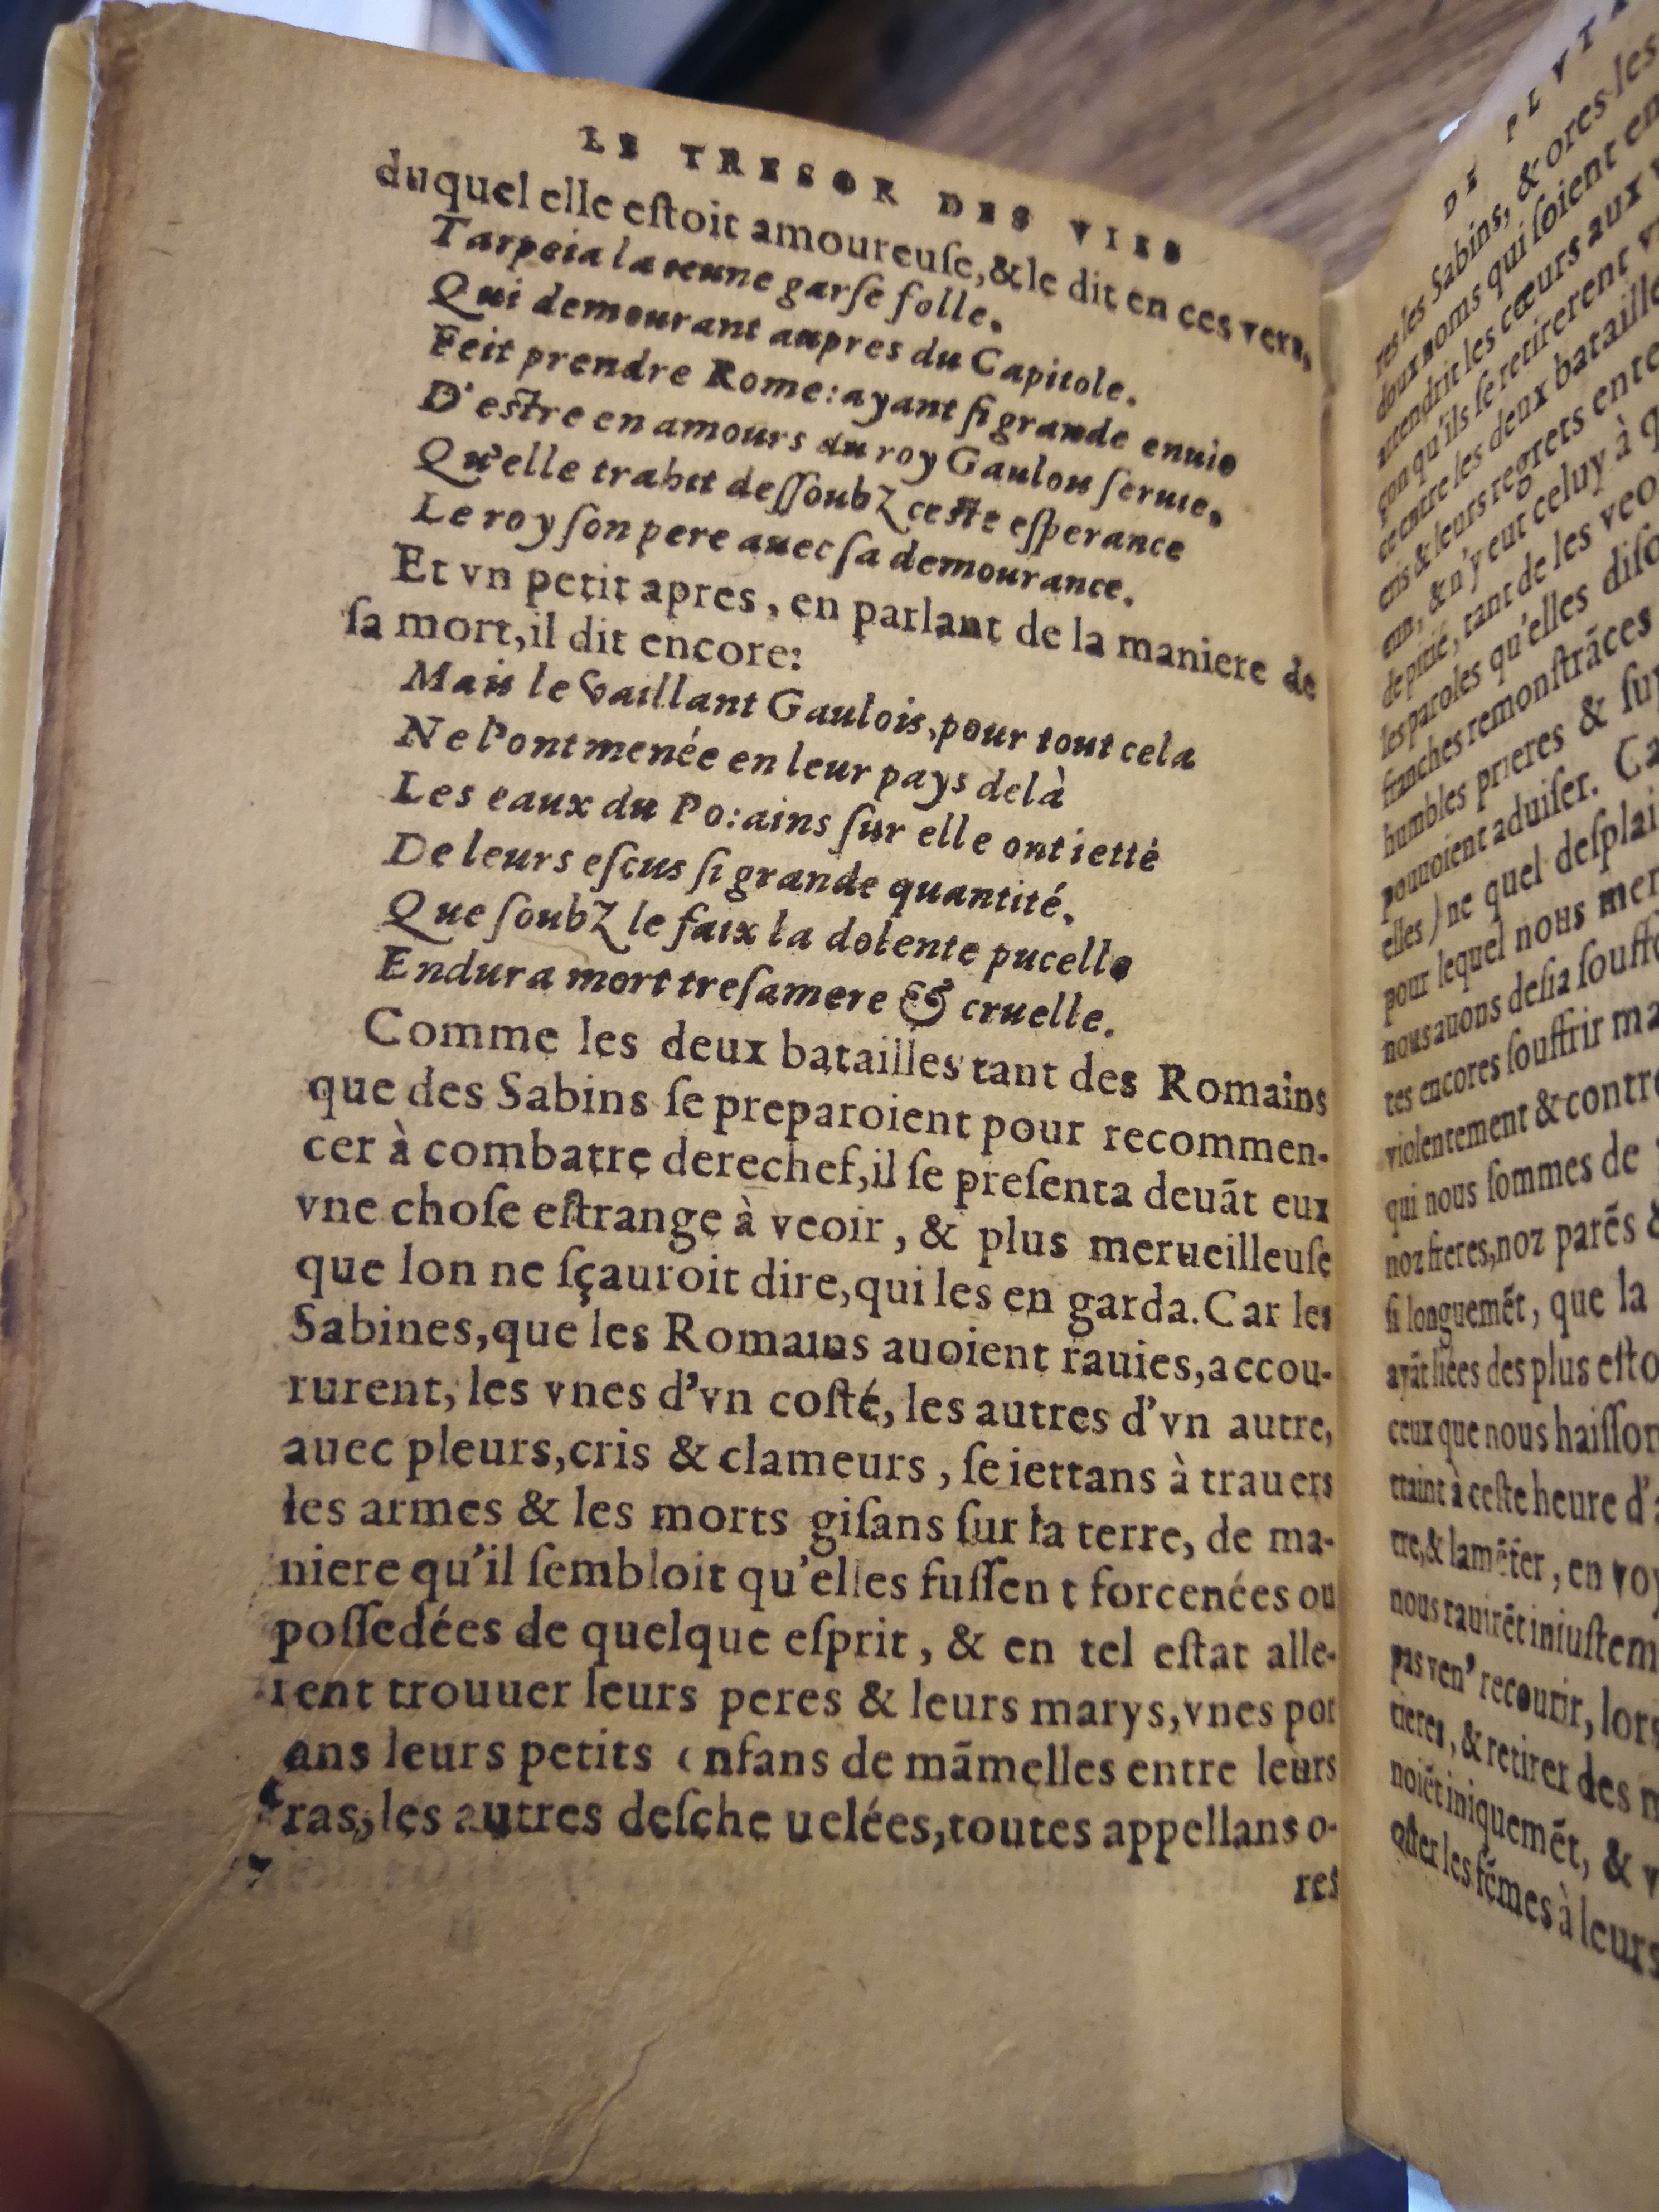 LE TRESOR DES VIES
duquel elle eſtoit amoureuſe,&le dit en ces vers,
Tarpeia la ieune garſe folle,
Qui demourant aupres du Capitole,
Feit prendre Rome:ayant ſi grande enuie
D'eſtre en amours du roy Gaulou ſeruie,
Qu'elle trahit deſſoubz ceſte eſperance
Le roy ſon pere auec ſa demourance.
Et vn petit apres, en parlant de la maniere de
ſa mort,il dit encore:
Mais le vaillant Gaulois,pour tout cela
Ne l'ont menée en leur pays delà
Les eaux du Po:ains ſur elle ont ietté
De leurs eſcus ſi grande quantité,
Que ſoubz le faix la dolente pucelle
Endura mort treſamere & cruelle.
Comme les deux batailles tant des Romains
que des Sabins ſe preparoient pour recommen-
cer à combatre derechef,il ſe preſenta deuāt eux
vne choſe eſtrange à veoir, & plus merueilleuſe
que lon ne ſçauroit dire,qui les en garda.Car les
Sabines,que les Romains auoient rauies,accou-
rurent, les vnes d'vn coſté, les autres d'vn autre,
auec pleurs,cris & clameurs, ſe iettans à trauers
les armes & les morts giſans ſur la terre, de ma-
niere qu'il ſembloit qu'elles fuſſen t forcenées ou
poſſedées de quelque eſprit, & en tel eſtat alle-
rent trouuer leurs peres & leurs marys,vnes por
ans leurs petits enfans de māmelles entre leurs
ras,les autres deſche uelées,toutes appellans o-
res
DE PLVT
res les Sabins, & ores les
doux noms qui ſoient en
attendrit les cœurs aux
çon qu'ils ſe retirerent
ce entre les deux bataille
cris & leurs regrets ente
cun, & n'y eut celuy à q
de pitié, tant de les veo
les paroles qu'elles diſo
franches remonſtrāces
humbles prieres & ſu
pouuoient aduiſer. Ca
elles) ne quel deſplai
pour lequel nous mer
nous auons deſia ſouff
tes encores ſouffrir ma
violentement & contre
qui nous ſommes de
noz freres,noz parēs &
ſi longuemēt, que la
ayāt liées des plus eſto
ceux que nous haiſſon
traint à ceſte heure d'a
tre,& lamēter, en voy
nous rauirēt iniuſtem
pas ven' recourir, lors
tieres, & retirer des m
noiēt iniquemēt, & v
oſter les fēmes à leurs